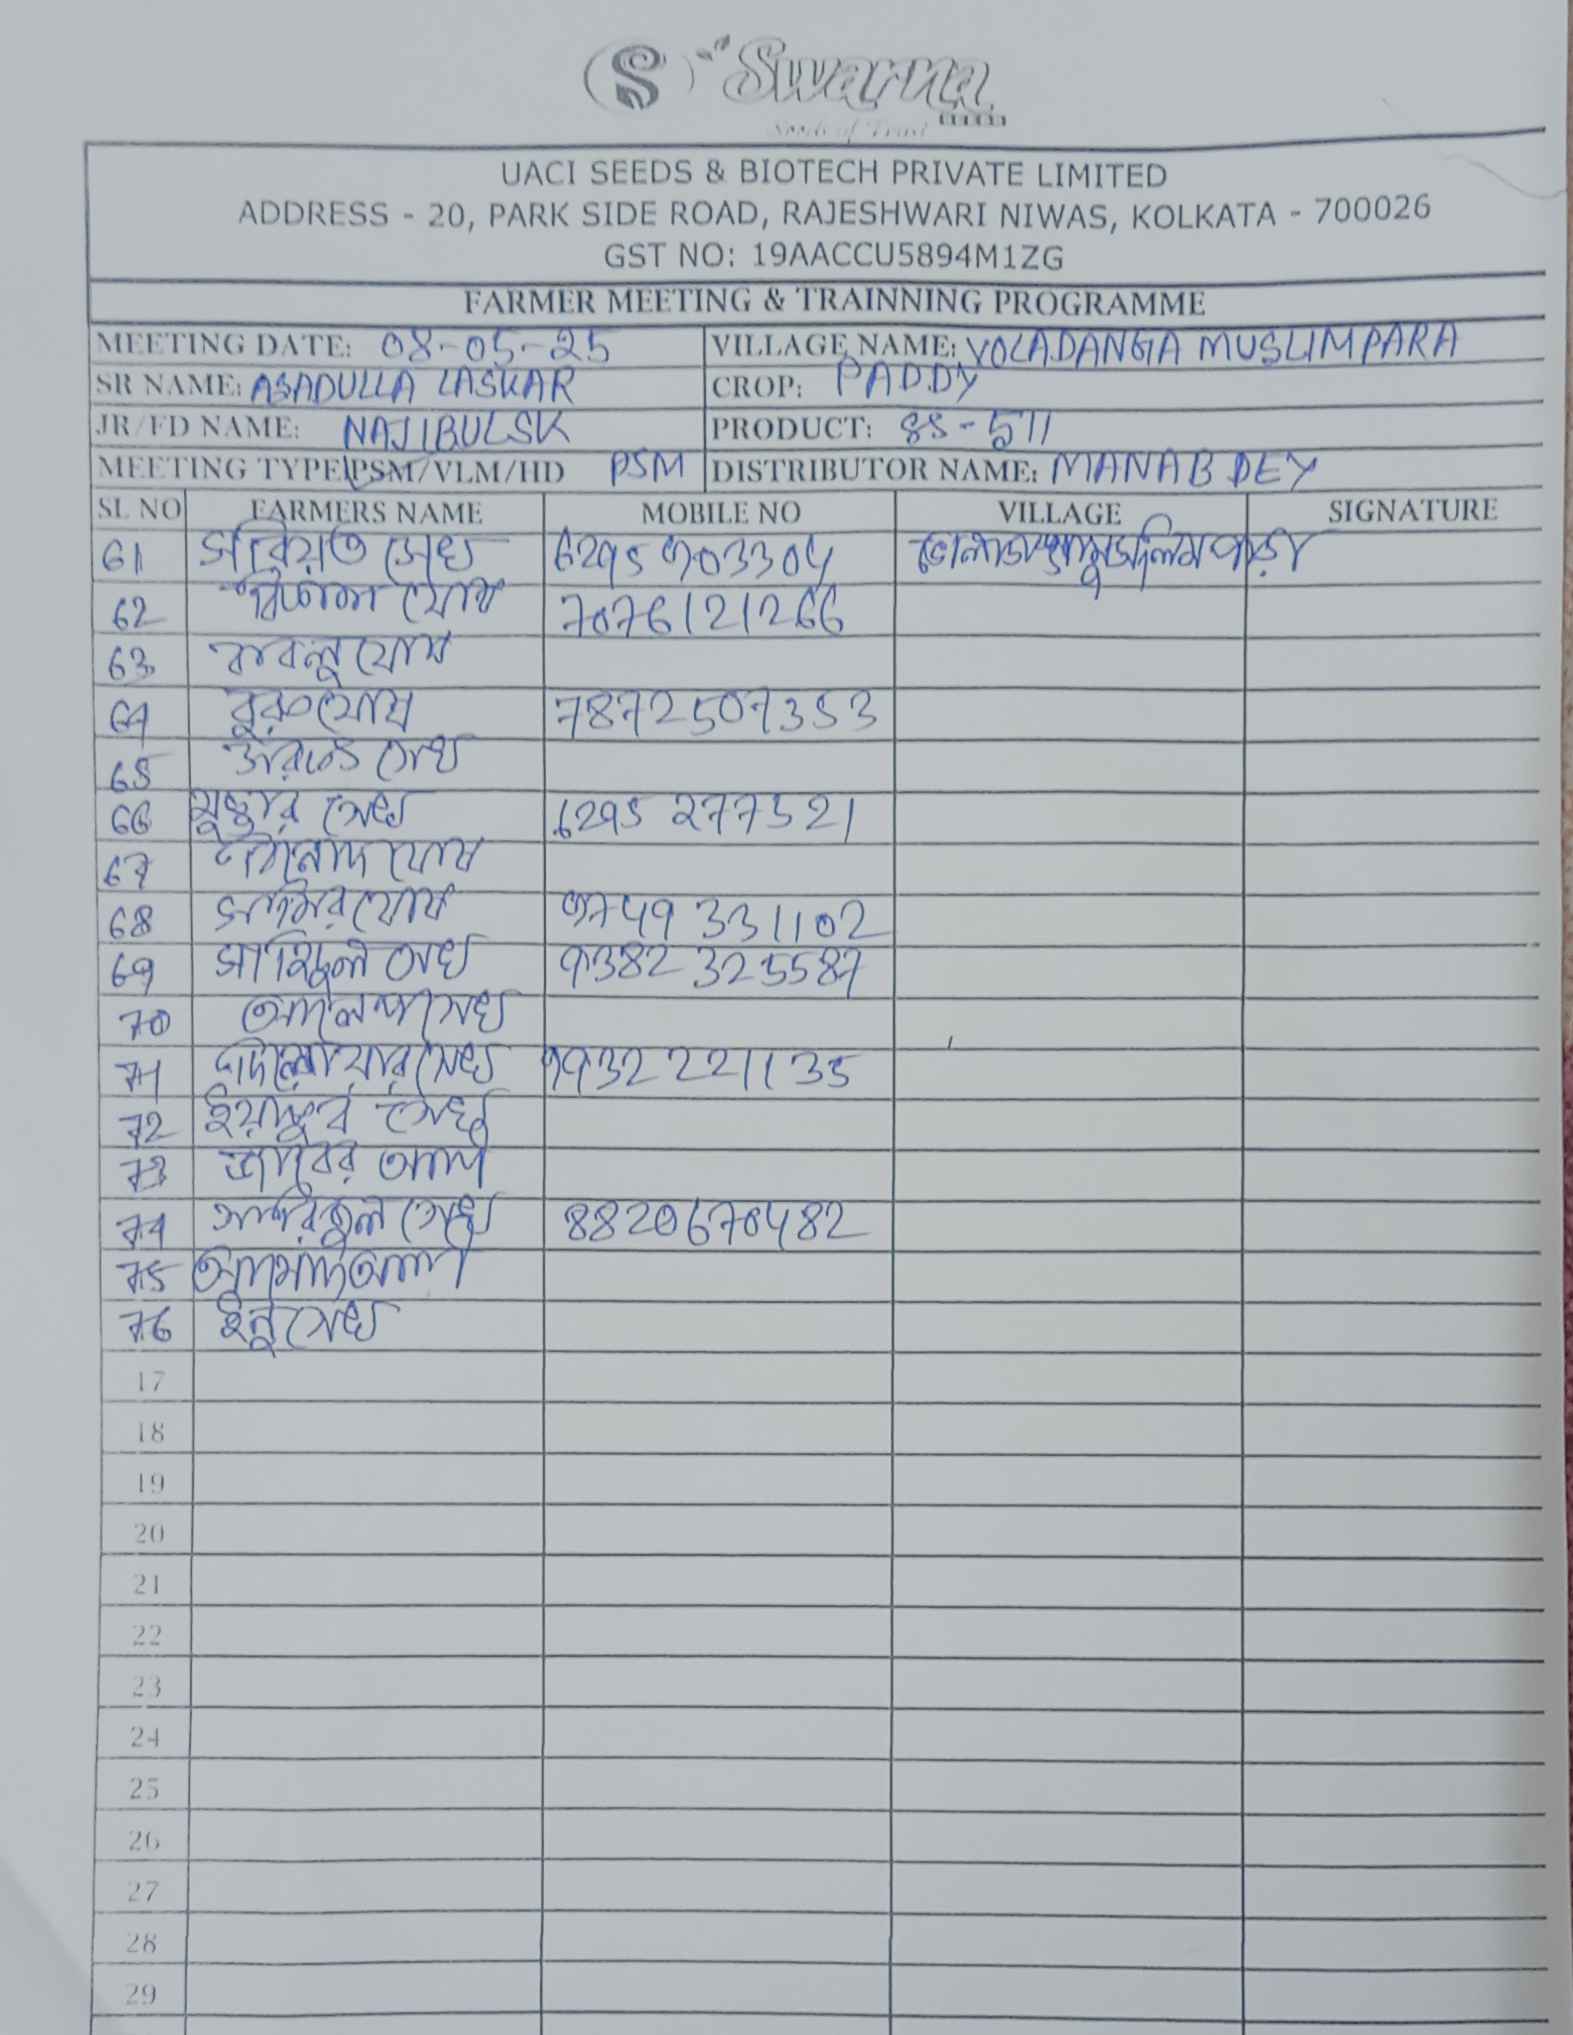 S Swarna
Seeds of Trust
UACI SEEDS & BIOTECH PRIVATE LIMITED
ADDRESS - 20, PARK SIDE ROAD, RAJESHWARI NIWAS, KOLKATA - 700026
GST NO: 19AACCU5894M1ZG
FARMER MEETING & TRAINNING PROGRAMME
MEETING DATE: 08-05-25 VILLAGE NAME: VOLADANGA MUSLIMPARA
SR NAME: ASADULLA LASKAR CROP: PADDY
JR/FD NAME: NAJIBUL SK PRODUCT: 8S-511
MEETING TYPE PSM/VLM/HD PSM DISTRIBUTOR NAME: MANAB DEY
SL NO FARMERS NAME MOBILE NO VILLAGE SIGNATURE
61 সরিয়ত সেখ 6295903304
62 ঘোষ 7076121266
63 বাবলু ঘোষ
64 ঘোষ 7872507353
65 সেখ
66 মুক্তার সেখ 6295 277521
67 ঘোষ
68 সমির ঘোষ 9749 331102
69 সাহিদুল সেখ 9382 325587
70 সেখ
71 সেখ 9932221135
72 সেখ
73 জাবের আলি
74 সেখ 8820670482
75 আলি
76 ইনু সেখ
17
18
19
20
21
22
23
24
25
26
27
28
29